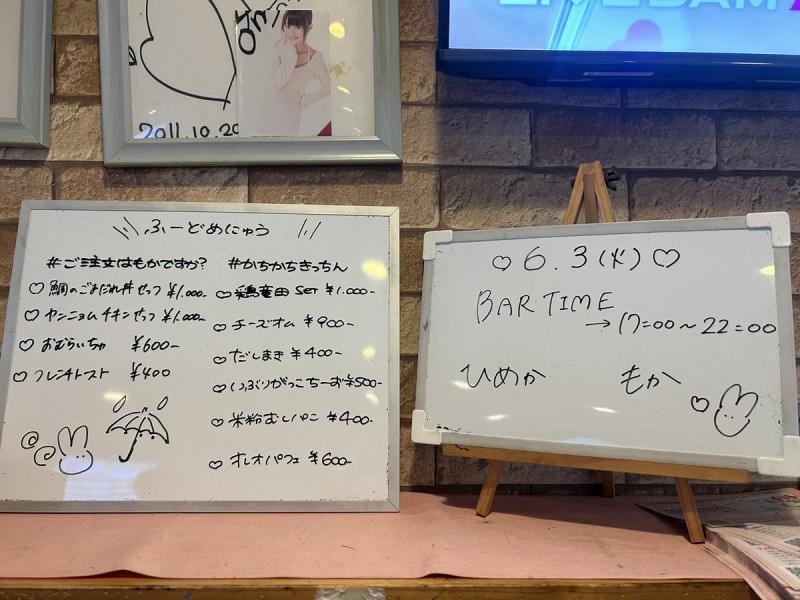 2011.10.20
LIVE DAM
\\ ふーどめにゅう //
#ご注文はもかですか?
♡ 鯛のごまだれ丼せっつ ¥1.000-
♡ ヤンニョムチキンせっつ ¥1.000-
♡ おむらいちゃ ¥600-
♡ フレンチトースト ¥400
#かちかちきっちん
♡ 鶏竜田 SET ¥1.000-
♡ チーズオム ¥900-
♡ だしまき ¥400-
♡ いぶりがっこちーお ¥500-
♡ 米粉むしパン ¥400-
♡ オレオパフェ ¥600-
♡ 6.3(火) ♡
BAR TIME
→ 17=00~22=00
ひめか もか